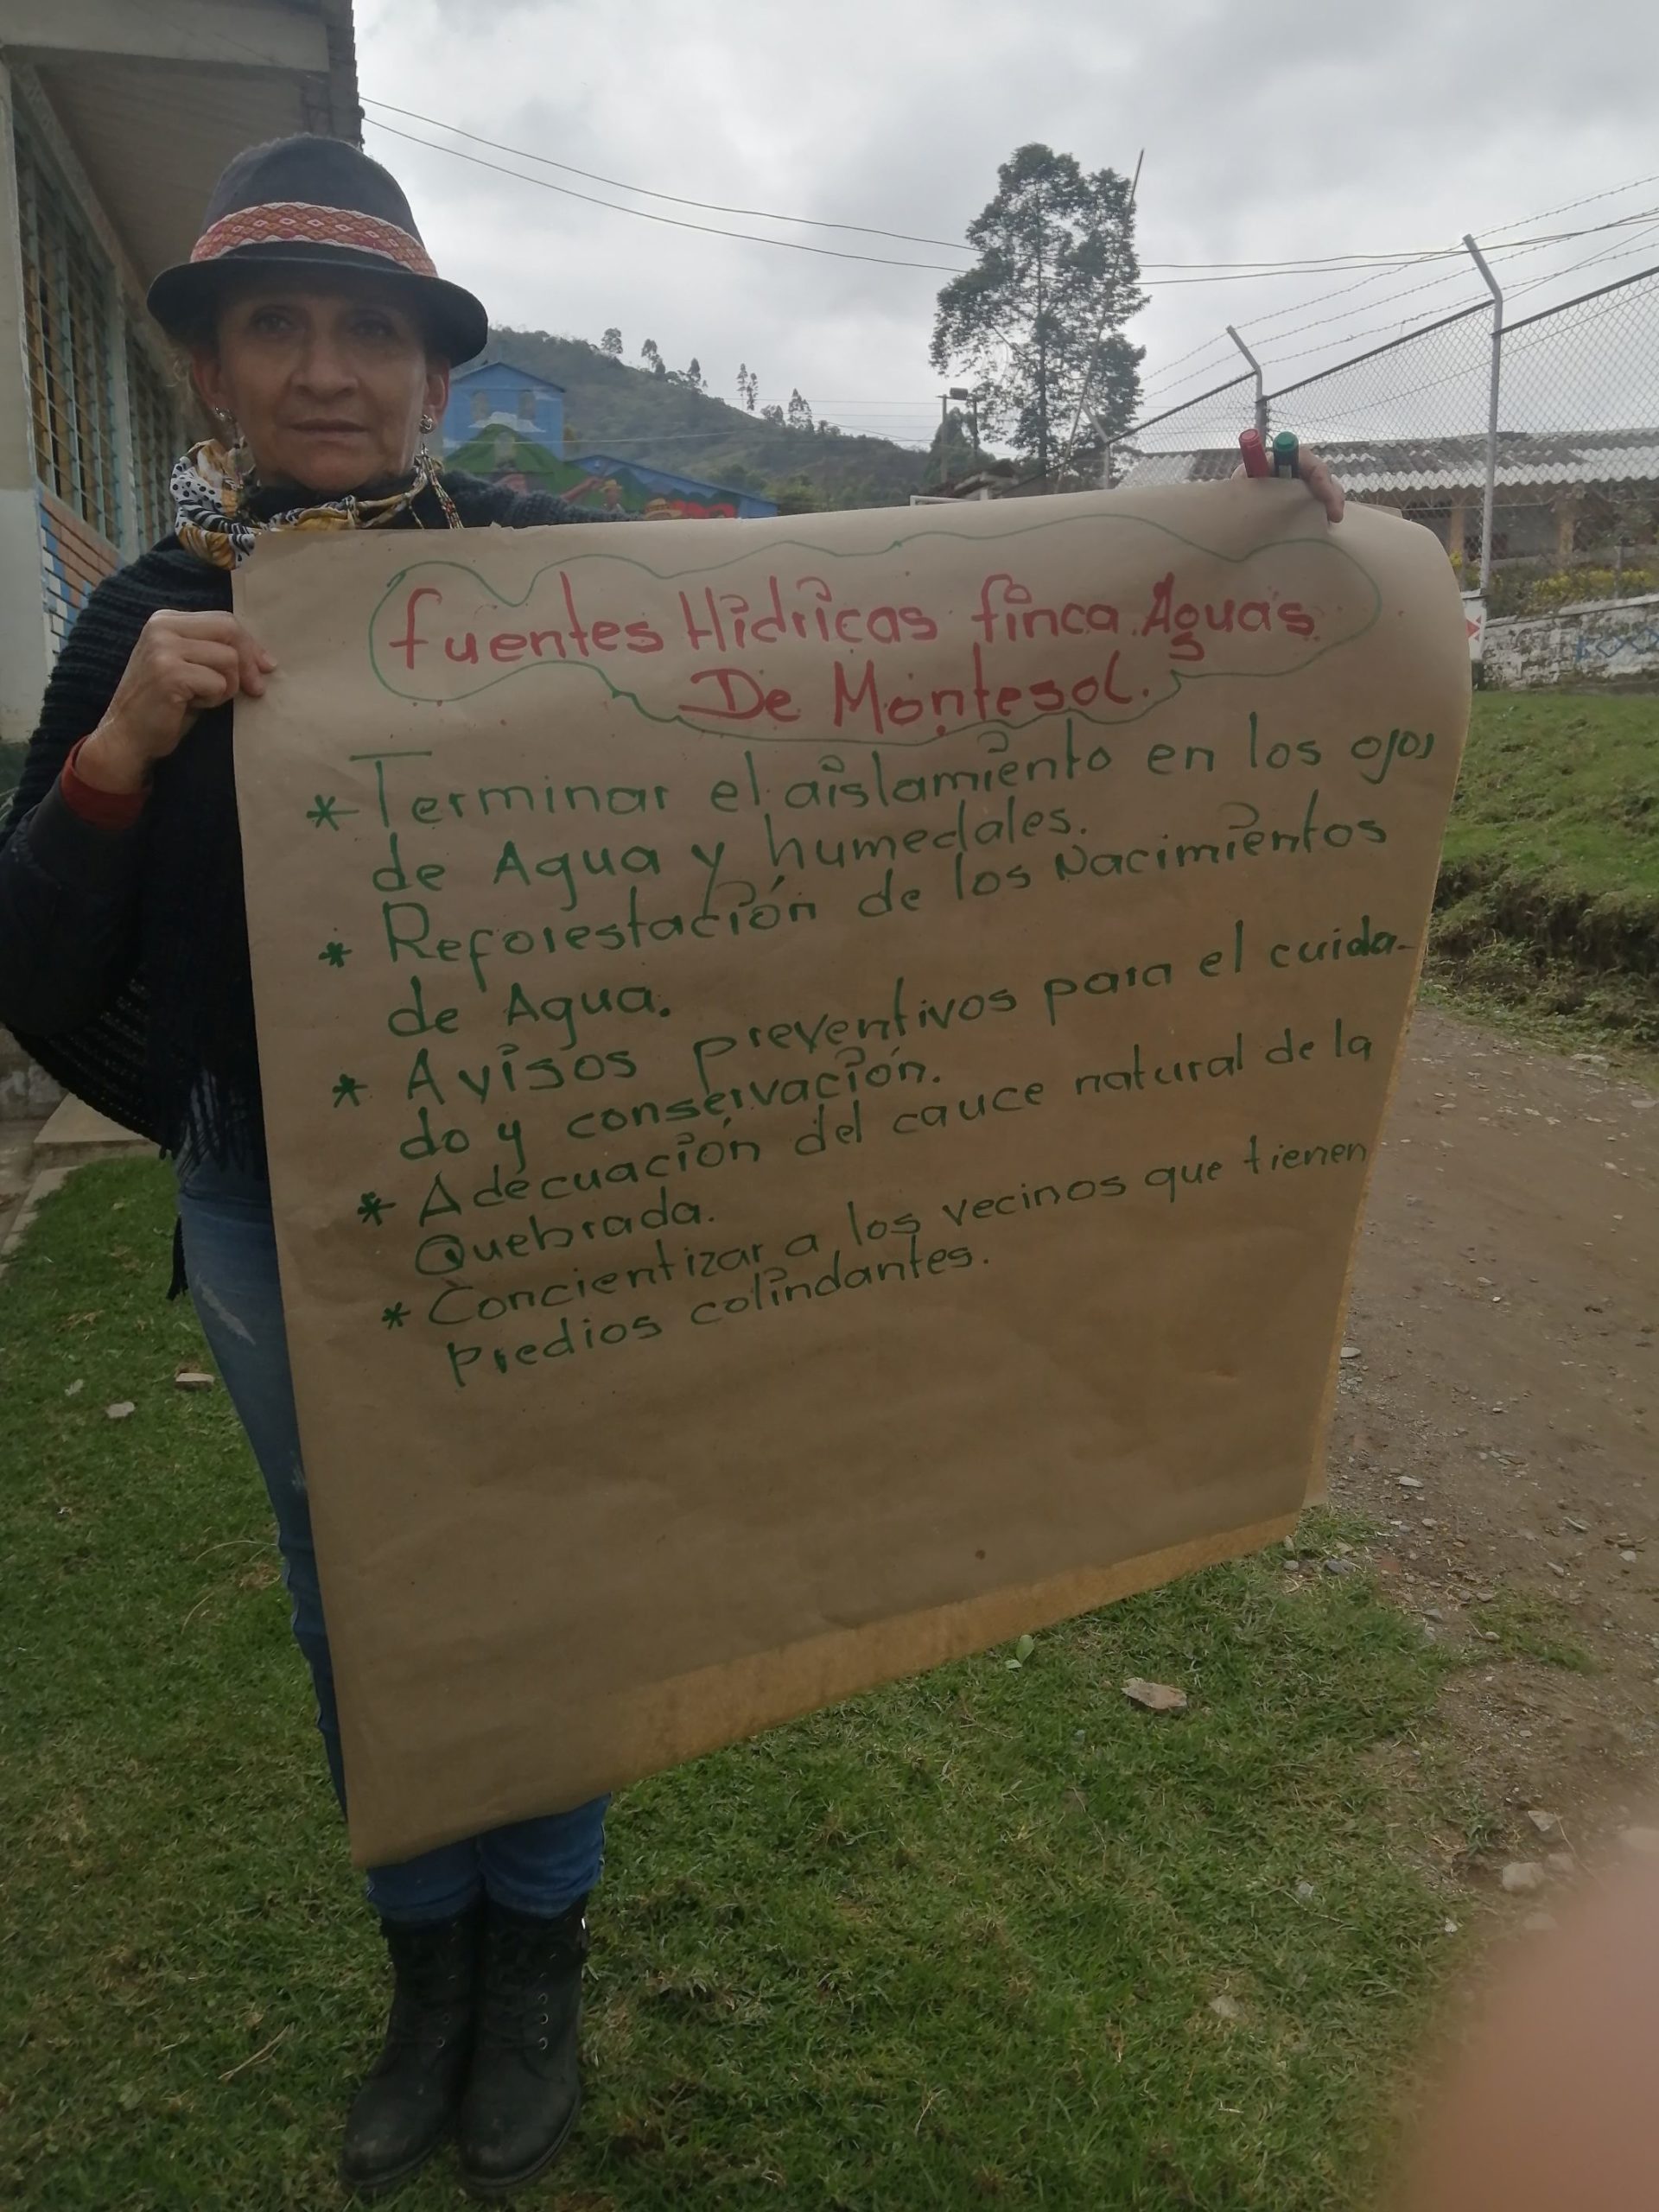 fuentes Hidricas finca Aguas
De Montesol.
* Terminar el aislamiento en los ojos
de Agua y humedales.
* Reforestación de los Nacimientos
de Agua.
* Avisos preventivos para el cuida-
do y conservación.
* Adecuación del cauce natural de la
Quebrada.
* Concientizar a los vecinos que tienen
predios colindantes.